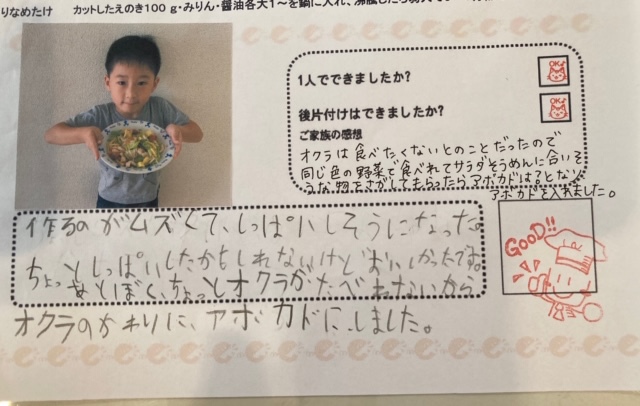 りなめたけ　カットしたえのき100g・みりん・醤油各大1～を鍋に入れ、沸騰したら
1人でできましたか？
OK♪
後片付けはできましたか？
OK♪
ご家族の感想
オクラは食べたくないとのことだったので
同じ色の野菜で食べれてサラダそうめんに合いそ
うな物をさがしてもらったら、アボカドは？となり
アボカドを入れました。
GOOD!!
作るのがムズくて、しっぱいしそうになった。
ちょっとしっぱいしたかもしれないけどおいしかったです。
あとぼく、ちょっとオクラがたべれないから
オクラのかわりに、アボカドにしました。